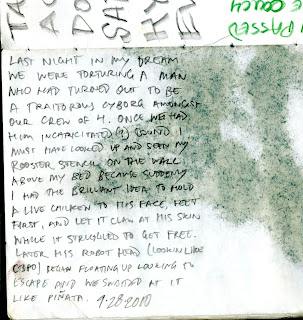 PASSED
LAST NIGHT IN MY DREAM
WE WERE TORTURING A MAN
WHO HAD TURNED OUT TO BE
A TRAITOROUS CYBORG AMONGST
OUR CREW OF 4. ONCE WE HAD
HIM INCAPACITATED (?) BOUND I
MUST HAVE LOOKED UP AND SEEN MY
ROOSTER STENCIL ON THE WALL
ABOVE MY BED BECAUSE SUDDENLY
I HAD THE BRILLIANT IDEA TO HOLD
A LIVE CHICKEN TO HIS FACE, FEET
FIRST, AND LET IT CLAW AT HIS SKIN
WHILE IT STRUGGLED TO GET FREE.
LATER HIS ROBOT HEAD (LOOKIN LIKE
C3PO) BEGAN FLOATING UP LOOKING TO
ESCAPE AND WE SWATTED AT IT
LIKE PIÑATA. 9.28.2010